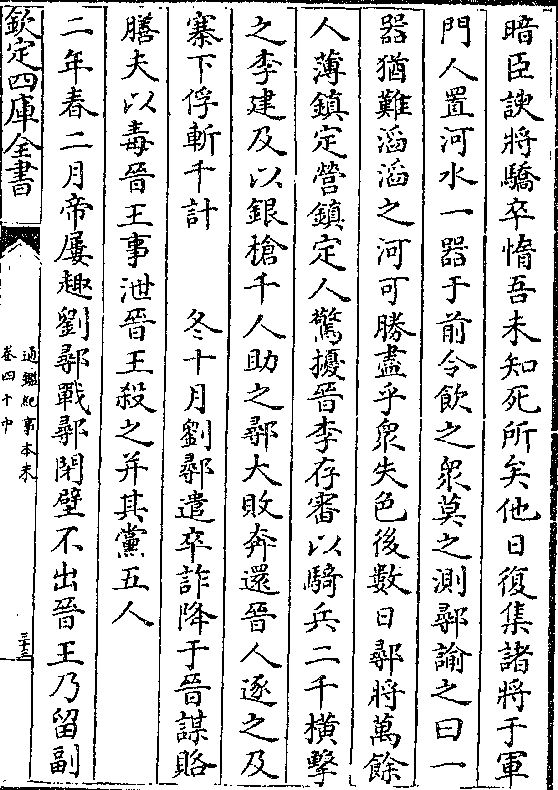 暗臣諛將驕卒惰吾未知死所矣他日復集諸將于軍
門人置河水一器于前令飲之衆莫之測鄩諭之曰一
器猶難滔滔之河可勝盡乎衆失色後數日鄩將萬餘
人薄鎮定營鎮定人驚擾晉李存審以騎兵二千橫擊
之李建及以銀槍千人助之鄩大敗奔還晉人逐之及
寨下俘斬千計　冬十月劉鄩遣卒詐降于晉謀賂
膳夫以毒晉王事泄晉王殺之并其黨五人
二年春二月帝屢趣劉鄩戰鄩閉壁不出晉王乃留副
欽定四庫全書
通鑑紀事本末
卷四十中
三十三